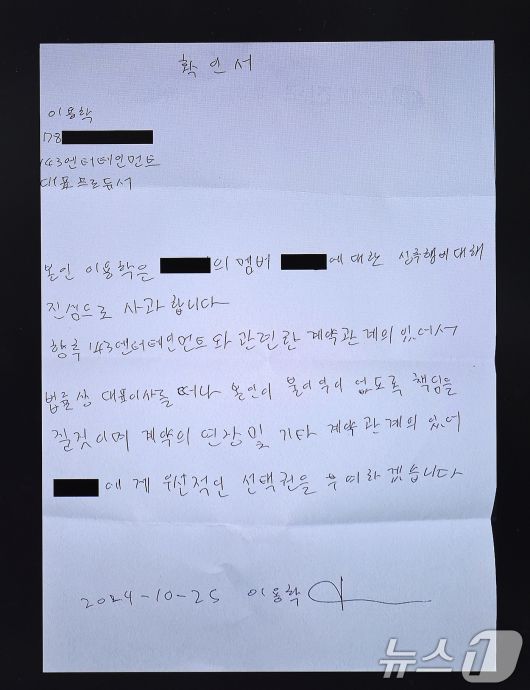 확인서
이용학
78
143엔터테인먼트
대표프로듀서
본인 이용학은 의 멤버 에 대한 성추행에 대해
진심으로 사과합니다
향후 143엔터테인먼트와 관련한 계약관계의 있어서
법률상 대표이사를 떠나 본인이 불이익이 없도록 책임을
질것이며 계약의 연장 및 기타 계약 관계의 있어
에게 우선적인 선택권을 부여하겠습니다
2024-10-25 이용학
뉴스1